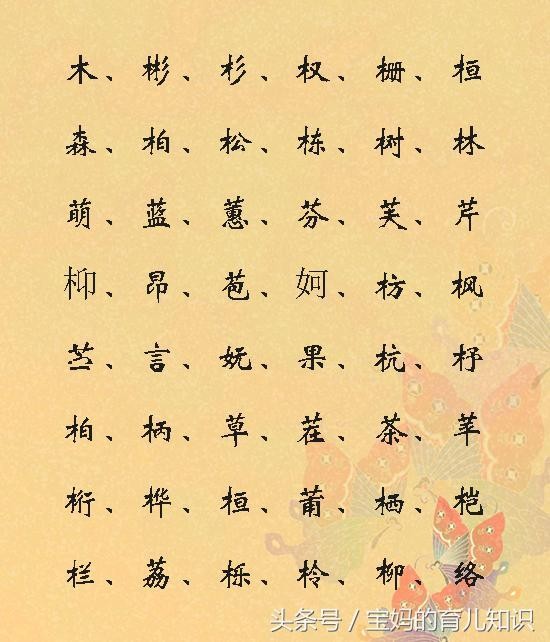 木、彬、杉、权、栅、桓
森、柏、松、栋、树、林
萌、蓝、蕙、芬、芙、芹
枊、昂、苞、妸、枋、枫
苎、言、妩、果、杭、杼
柏、柄、草、茬、茶、苹
桁、桦、桓、莆、栖、桤
栏、荔、栎、柃、柳、络
头条号 / 宝妈的育儿知识